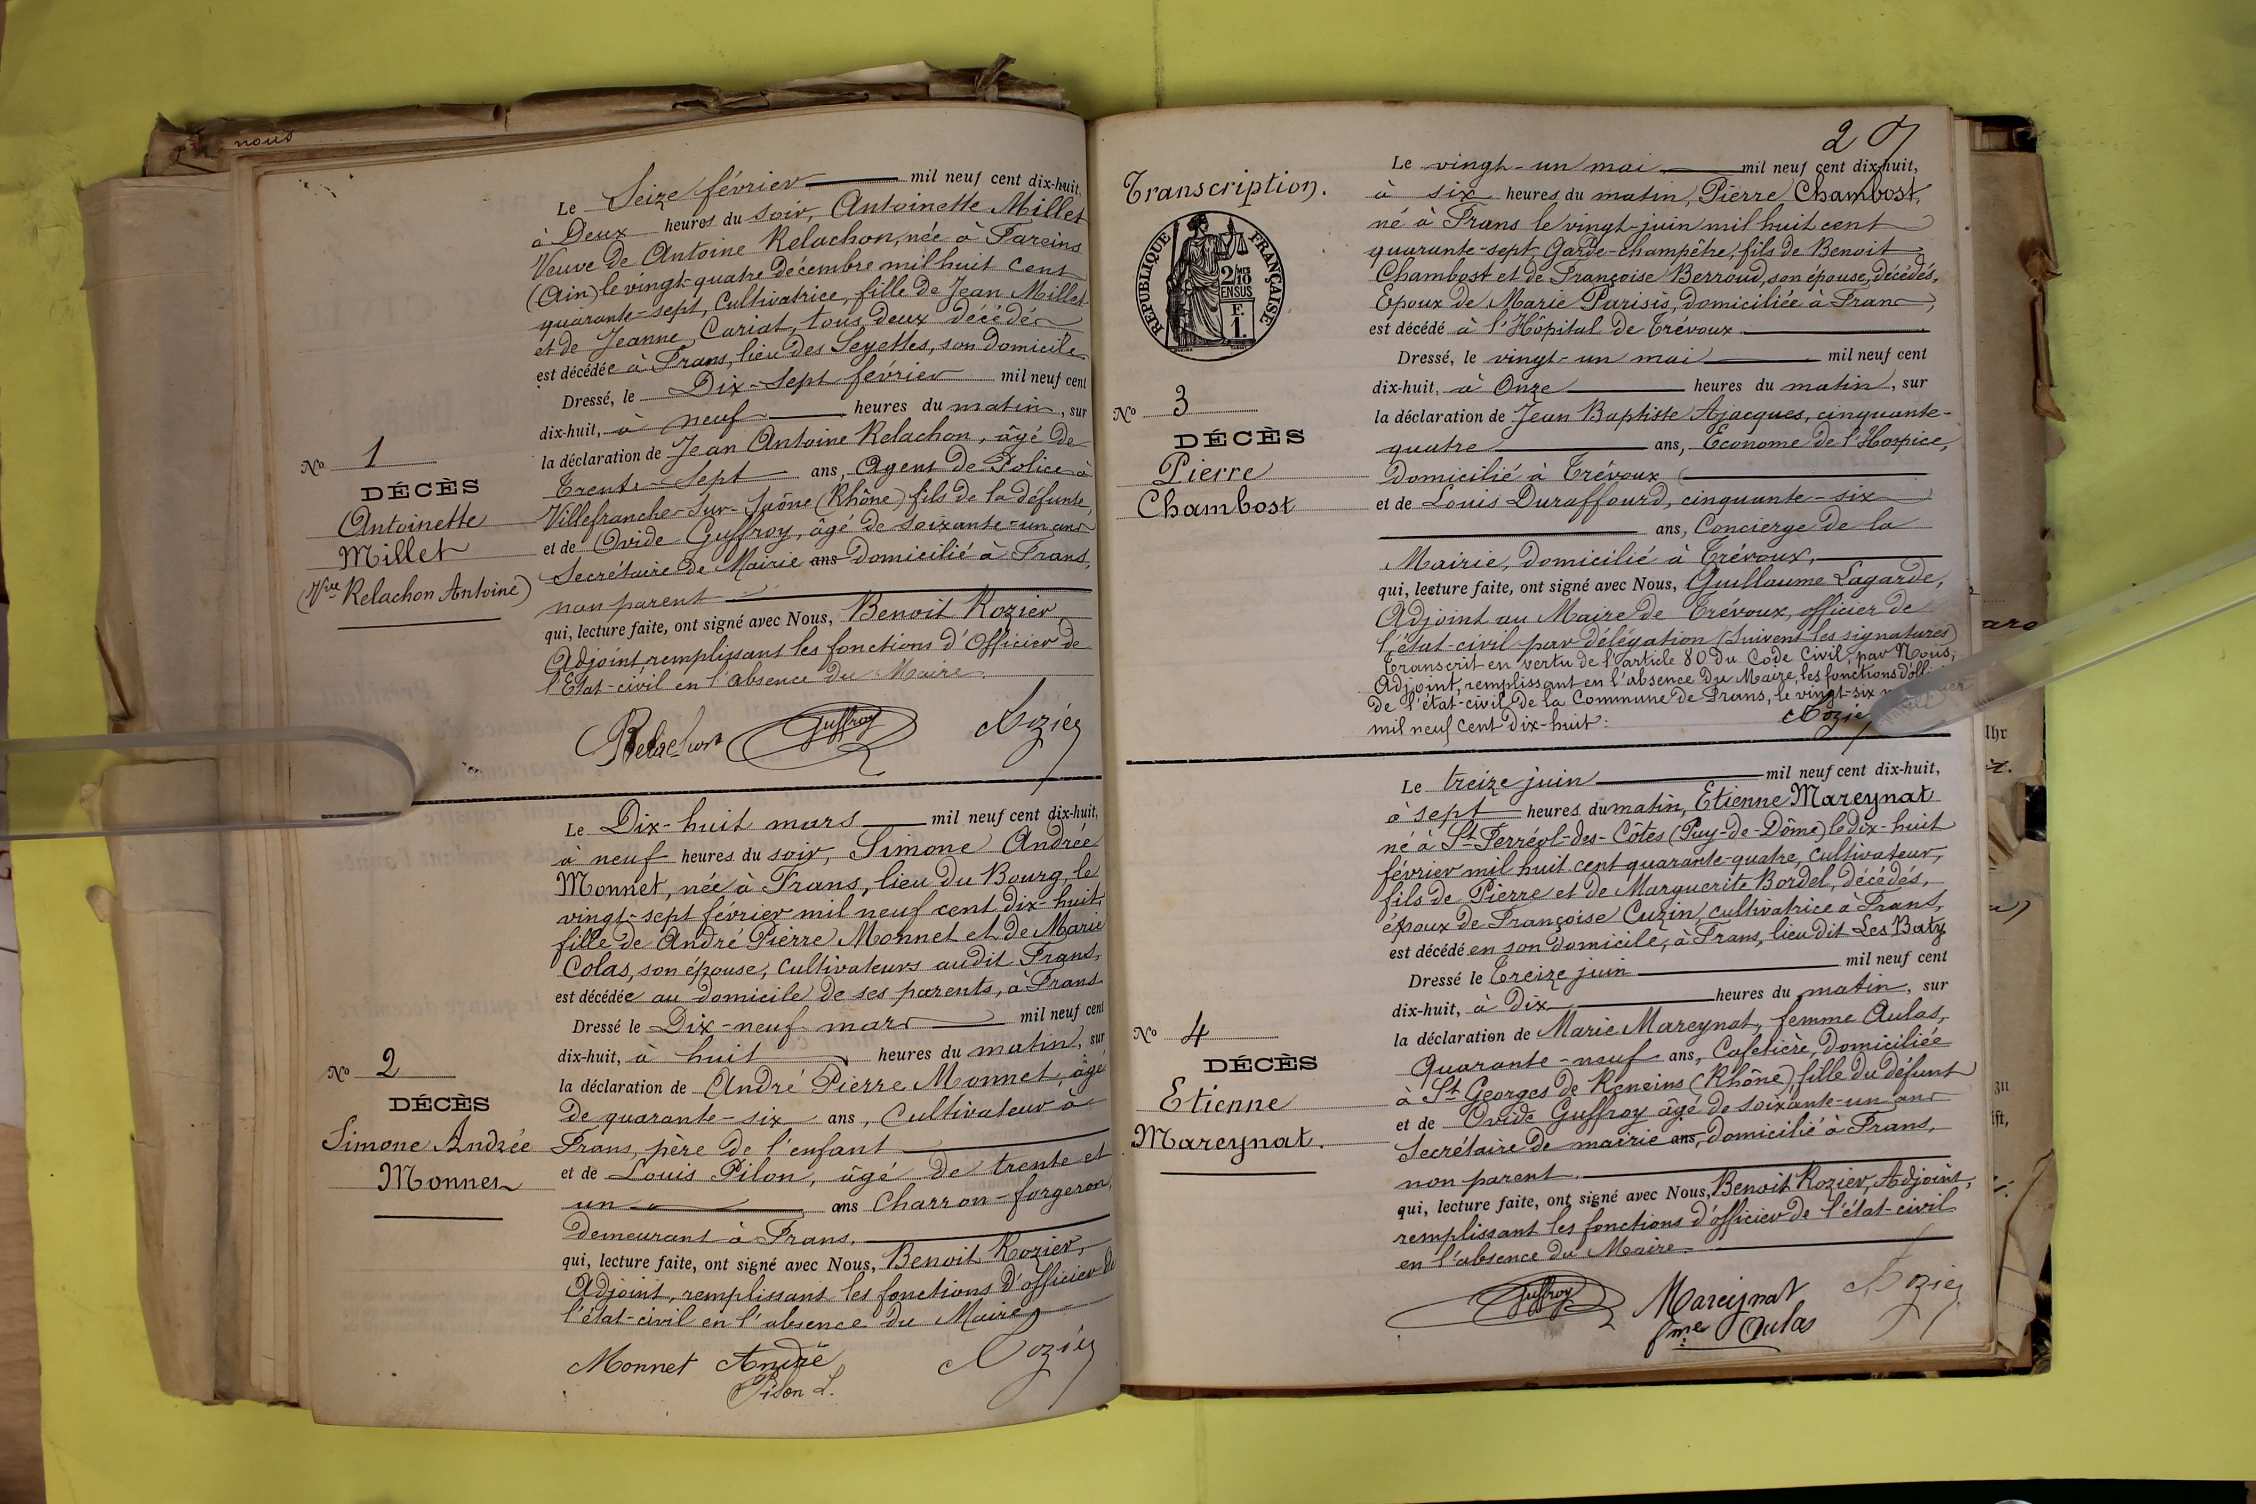 nous
Le Seize février mil neuf cent dix-huit,
à Deux heures du soir, Antoinette Millet
Veuve de Antoine Relachon, née à Fareins
(Ain) le vingt-quatre Décembre mil huit cent
quarante-sept, Cultivatrice, fille de Jean Millet
et de Jeanne Cariat, tous deux décédés
est décédée à Frans, lieu des Seyettes, son domicile
Dressé, le Dix-sept février mil neuf cent
dix-huit, à neuf heures du matin, sur
la déclaration de Jean Antoine Relachon, âgé de
Trente-sept ans, Agent de Police à
Villefranche-sur-Saône (Rhône) fils de la défunte,
et de Ovide Guffroy, âgé de soixante-un ans
Secrétaire de Mairie ans Domicilié à Frans,
non parent
qui, lecture faite, ont signé avec Nous, Benoit Rozier
Adjoint, remplissant les fonctions d'Officier de
l'Etat-civil en l'absence du Maire.
Relachon Guffroy Rozier
No 1
DÉCÈS
Antoinette
Millet
(Vve Relachon Antoine)
Le Dix-huit mars mil neuf cent dix-huit,
à neuf heures du soir, Simone Andrée
Monnet, née à Frans, lieu du Bourg, le
vingt-sept février mil neuf cent dix-huit,
fille de André Pierre Monnet et de Marie
Colas, son épouse, Cultivateurs audit Frans,
est décédée au domicile de ses parents, à Frans
Dressé le Dix-neuf mars mil neuf cent
dix-huit, à huit heures du matin, sur
la déclaration de André Pierre Monnet, âgé
de quarante-six ans, Cultivateur à
Frans, père de l'enfant
et de Louis Pilon, âgé de trente et
un ans Charron-forgeron,
demeurant à Frans.
qui, lecture faite, ont signé avec Nous, Benoit Rozier,
Adjoint, remplissant les fonctions d'officier de
l'état-civil en l'absence du Maire
Monnet André Rozier
Pilon L.
No 2
DÉCÈS
Simone Andrée
Monnet
2
Transcription.
RÉPUBLIQUE FRANÇAISE
2/10
EN SUS
F.
1.
Le vingt-un mai mil neuf cent dix-huit,
à six heures du matin, Pierre Chambost,
né à Frans le vingt-juin mil huit cent
quarante-sept, Garde-champêtre, fils de Benoit
Chambost et de Françoise Berroud, son épouse, décédés,
Epoux de Marie Parisis, domiciliée à Frans,
est décédé à l'Hôpital de Trévoux
Dressé, le vingt-un mai mil neuf cent
dix-huit, à Onze heures du matin, sur
la déclaration de Jean Baptiste Ajacques, cinquante-
quatre ans, Econome de l'Hospice,
Domicilié à Trévoux
et de Louis Duraffourd, cinquante-six
ans, Concierge de la
Mairie, Domicilié à Trévoux,
qui, lecture faite, ont signé avec Nous, Guillaume Lagarde,
Adjoint au Maire de Trévoux, officier de
l'état-civil par délégation (Suivent les signatures)
Transcrit en vertu de l'article 80 du Code Civil, par Nous,
Adjoint, remplissant en l'absence du Maire, les fonctions d'
de l'état-civil de la Commune de Frans, le vingt-six
mil neuf cent dix-huit: Rozier
No 3
DÉCÈS
Pierre
Chambost
Le treize juin mil neuf cent dix-huit,
à sept heures du matin, Etienne Mareynat
né à St Ferréol-des-Côtes (Puy-de-Dôme) le dix-huit
février mil huit cent quarante-quatre, Cultivateur,
fils de Pierre et de Marguerite Bordel, décédés,
époux de Françoise Cuzin, cultivatrice à Frans,
est décédé en son domicile, à Frans, lieu dit Les Baty
Dressé le Treize juin mil neuf cent
dix-huit, à Dix heures du matin, sur
la déclaration de Marie Mareynat, femme Aulas,
Quarante-neuf ans, Cafetière, domiciliée
à St Georges de Reneins (Rhône), fille du défunt
et de Ovide Guffroy âgé de soixante-un ans
Secrétaire de mairie ans, domicilié à Frans,
non parent.
qui, lecture faite, ont signé avec Nous, Benoit Rozier, Adjoint,
remplissant les fonctions d'officier de l'état-civil
en l'absence du Maire
Guffroy Mareynat Rozier
fme Aulas
No 4
DÉCÈS
Etienne
Mareynat.